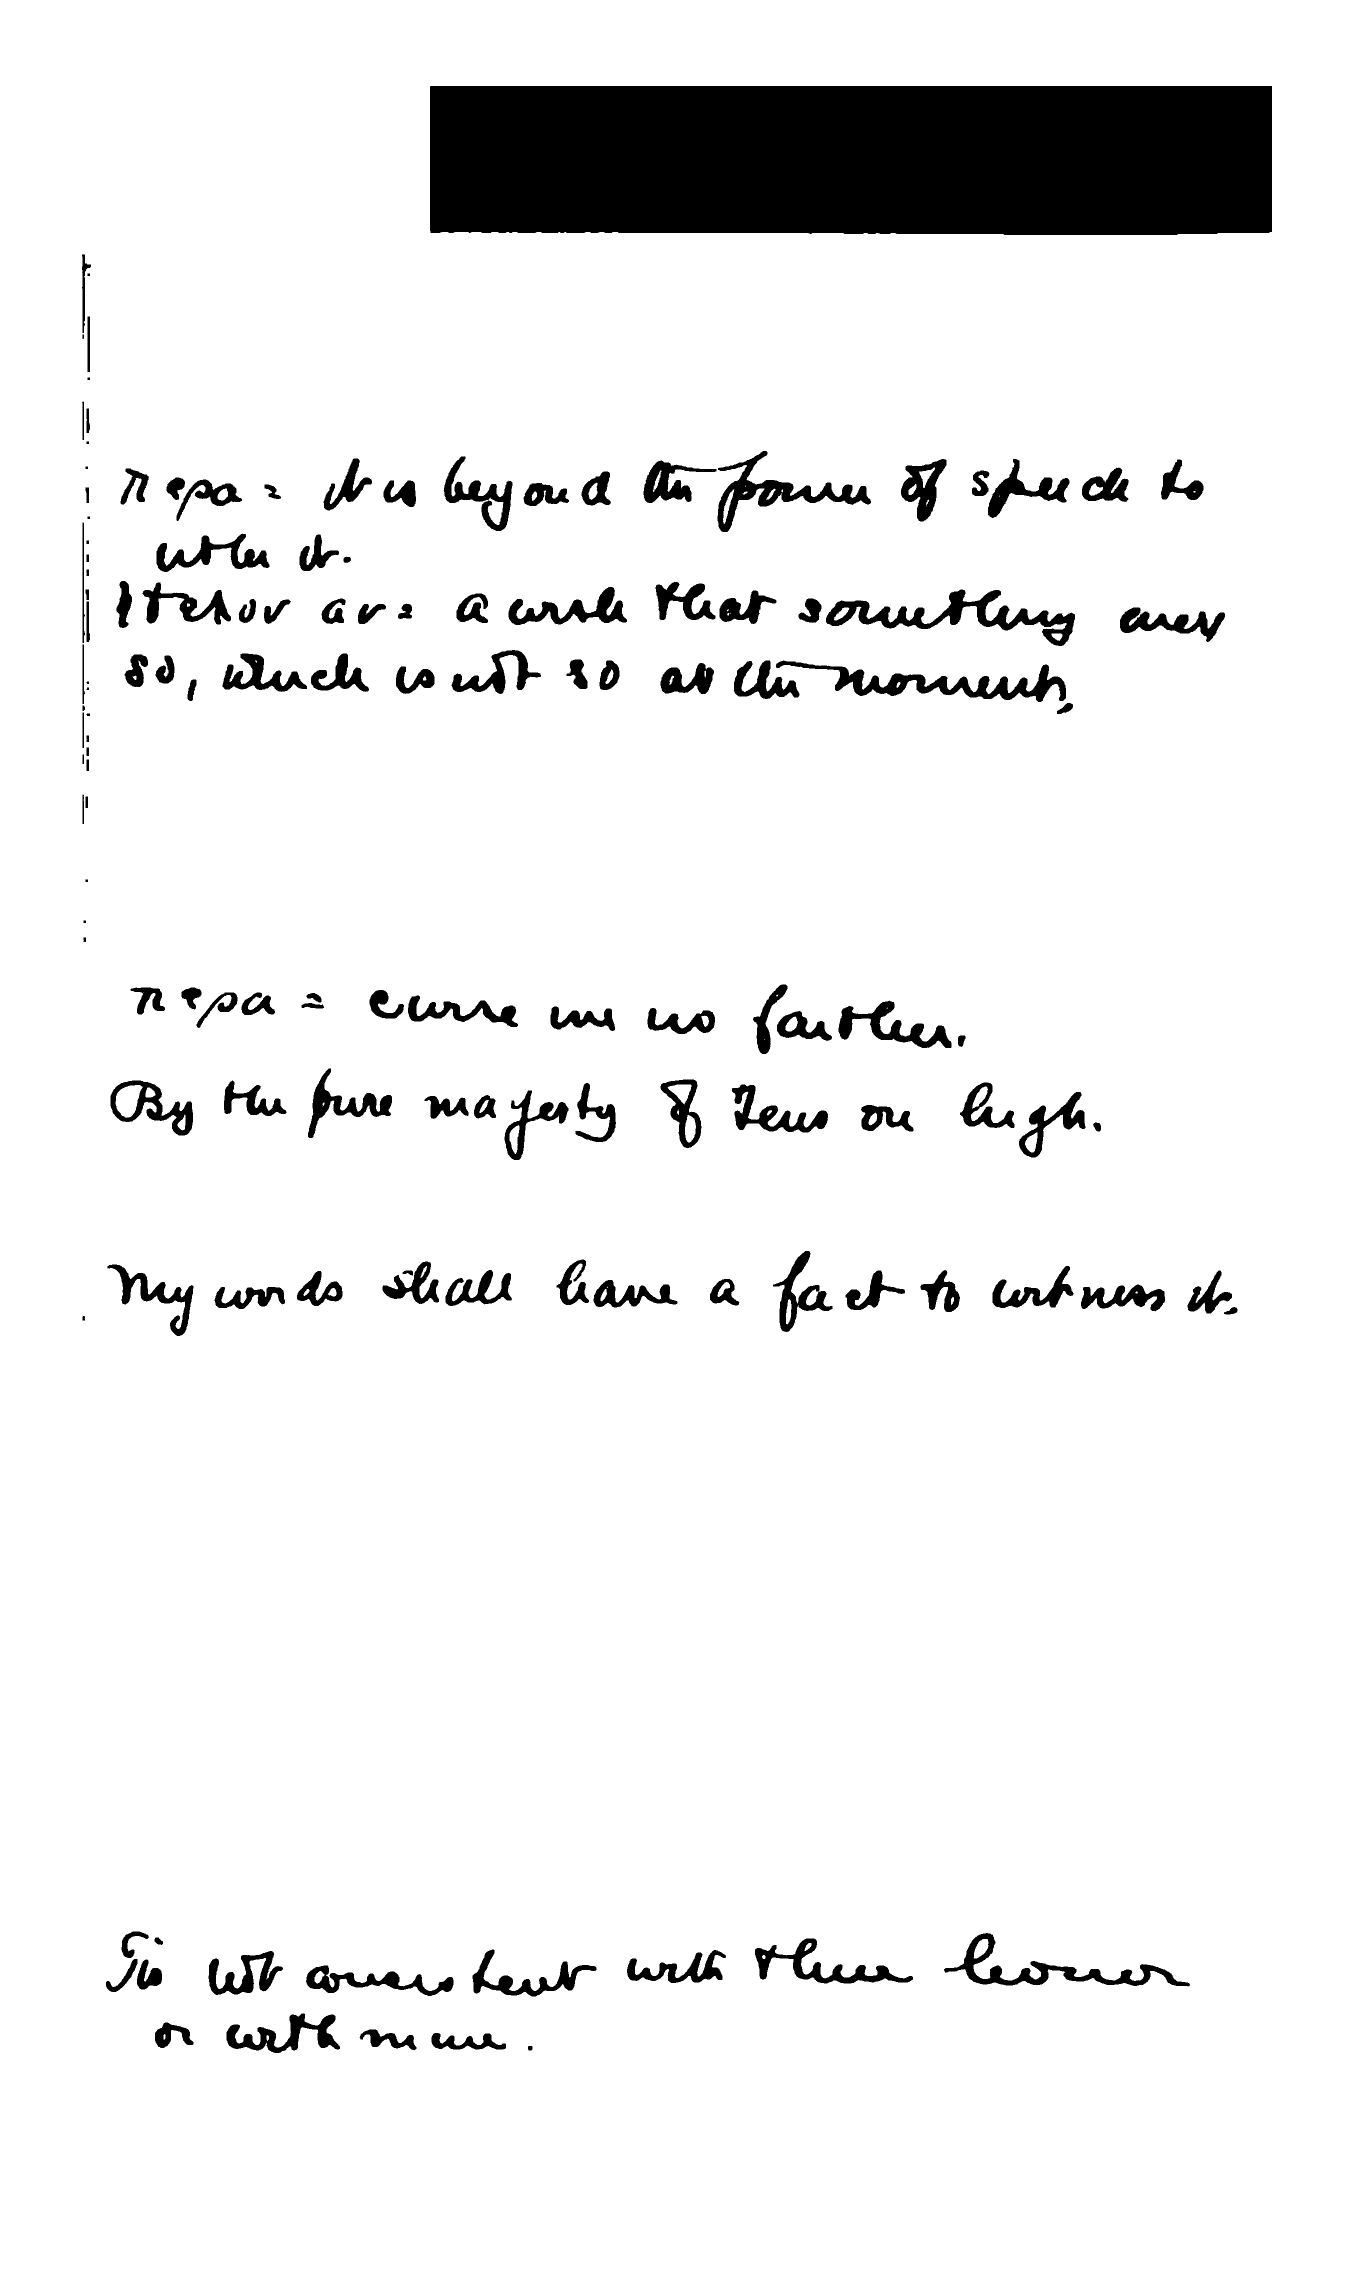 περα = it is beyond the power of speech to
utter it.
ἤθελον αν = a wish that something were
so, which is not so at the moment,
περα = curse me no farther.
By the pure majesty of Zeus on high.
My words shall have a fact to witness it.
Tis not consistent with thine honor
or with mine.